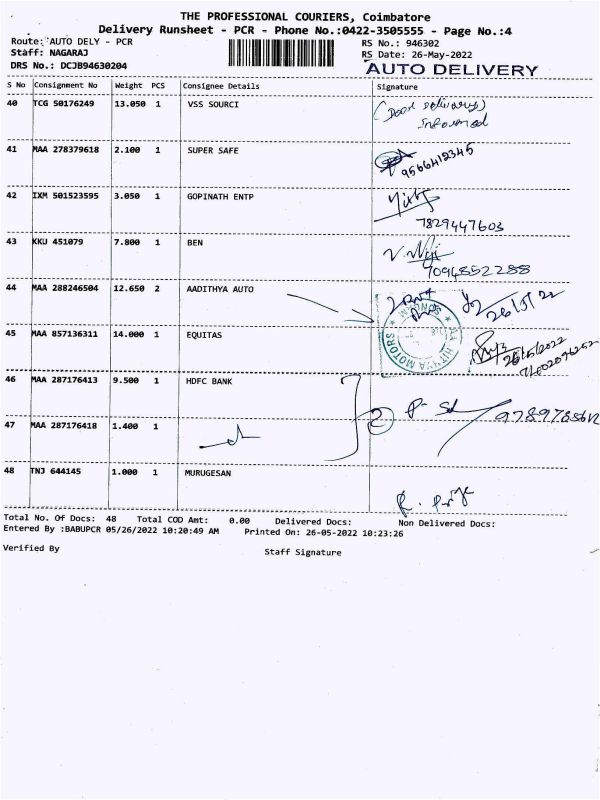 THE PROFESSIONAL COURIERS, Coimbatore
Delivery Runsheet - PCR - Phone No.:0422-3505555 - Page No.:4
Route: AUTO DELY - PCR RS No.: 946302
Staff: NAGARAJ RS Date: 26-May-2022
DRS No.: DCJB94630204 AUTO DELIVERY
S No Consignment No Weight PCS Consignee Details Signature
40 TCG 50176249 13.050 1 VSS SOURCI (Door delivery)
Informed
41 MAA 278379618 2.100 1 SUPER SAFE
9566412345
42 IXM 501523595 3.050 1 GOPINATH ENTP
7829447603
43 KKU 451079 7.800 1 BEN
7094852288
44 MAA 288246504 12.650 2 AADITHYA AUTO
26/5/22
45 MAA 857136311 14.000 1 EQUITAS
MOTORS
26/5/2022
46 MAA 287176413 9.500 1 HDFC BANK
2
47 MAA 287176418 1.400 1
48 TNJ 644145 1.000 1 MURUGESAN
Total No. Of Docs: 48 Total COD Amt: 0.00 Delivered Docs: Non Delivered Docs:
Entered By :BABUPCR 05/26/2022 10:20:49 AM Printed On: 26-05-2022 10:23:26
Verified By Staff Signature